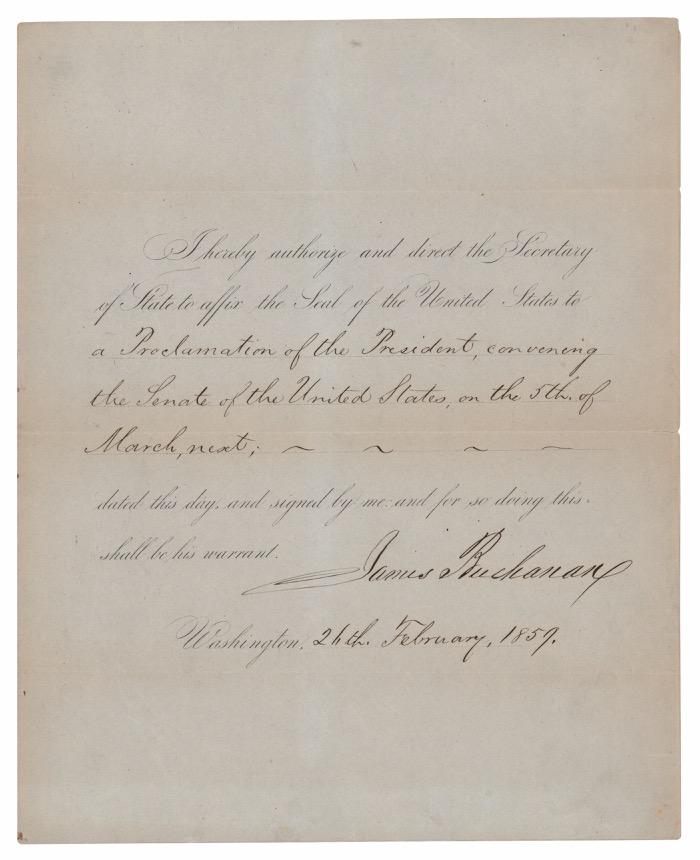 I hereby authorize and direct the Secretary
of State to affix the Seal of the United States to
a Proclamation of the President, convening
the Senate of the United States, on the 5th. of
March, next; ~ ~ ~ ~
dated this day, and signed by me: and for so doing this
shall be his warrant.
James Buchanan
Washington, 26th. February, 1859.